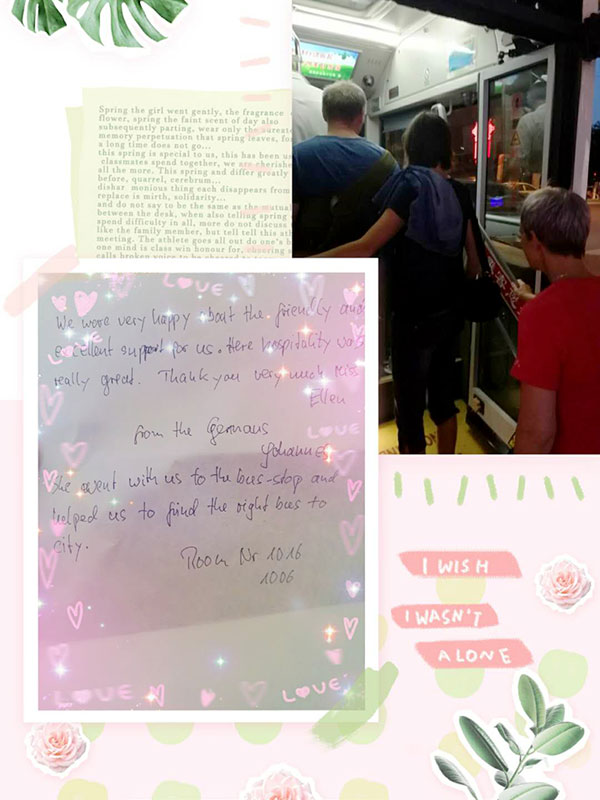 Spring the girl went gently, the fragrance
flower, spring the faint scent of day also
subsequently parting, wear only the
memory perpetuation that spring leaves,
a long time does not go...
this spring is special to us, this has been
classmates spend together, we are
all the more. This spring and differ greatly
before, quarrel, cerebrum...
dishar monious thing each disappears from
replace is mirth, solidarity...
and do not say to be the same as the mutual
between the desk, when also telling spring
spend difficulty in all, more do not discuss
like the family member, but tell tell this
meeting. The athlete goes all out do one's
one mind is class win honour for,
calls broken voice to be
LOVE
We were very happy about the friendly and
excellent support for us. Here hospitality was
really great. Thank you very much Miss
Ellen
from the Germans
Johannes
She went with us to the bus-stop and
helped us to find the right bus to
city.
Room Nr 1016
1006
LOVE
LOVE
LOVE
LOVE
I WISH
I WASN'T
ALONE